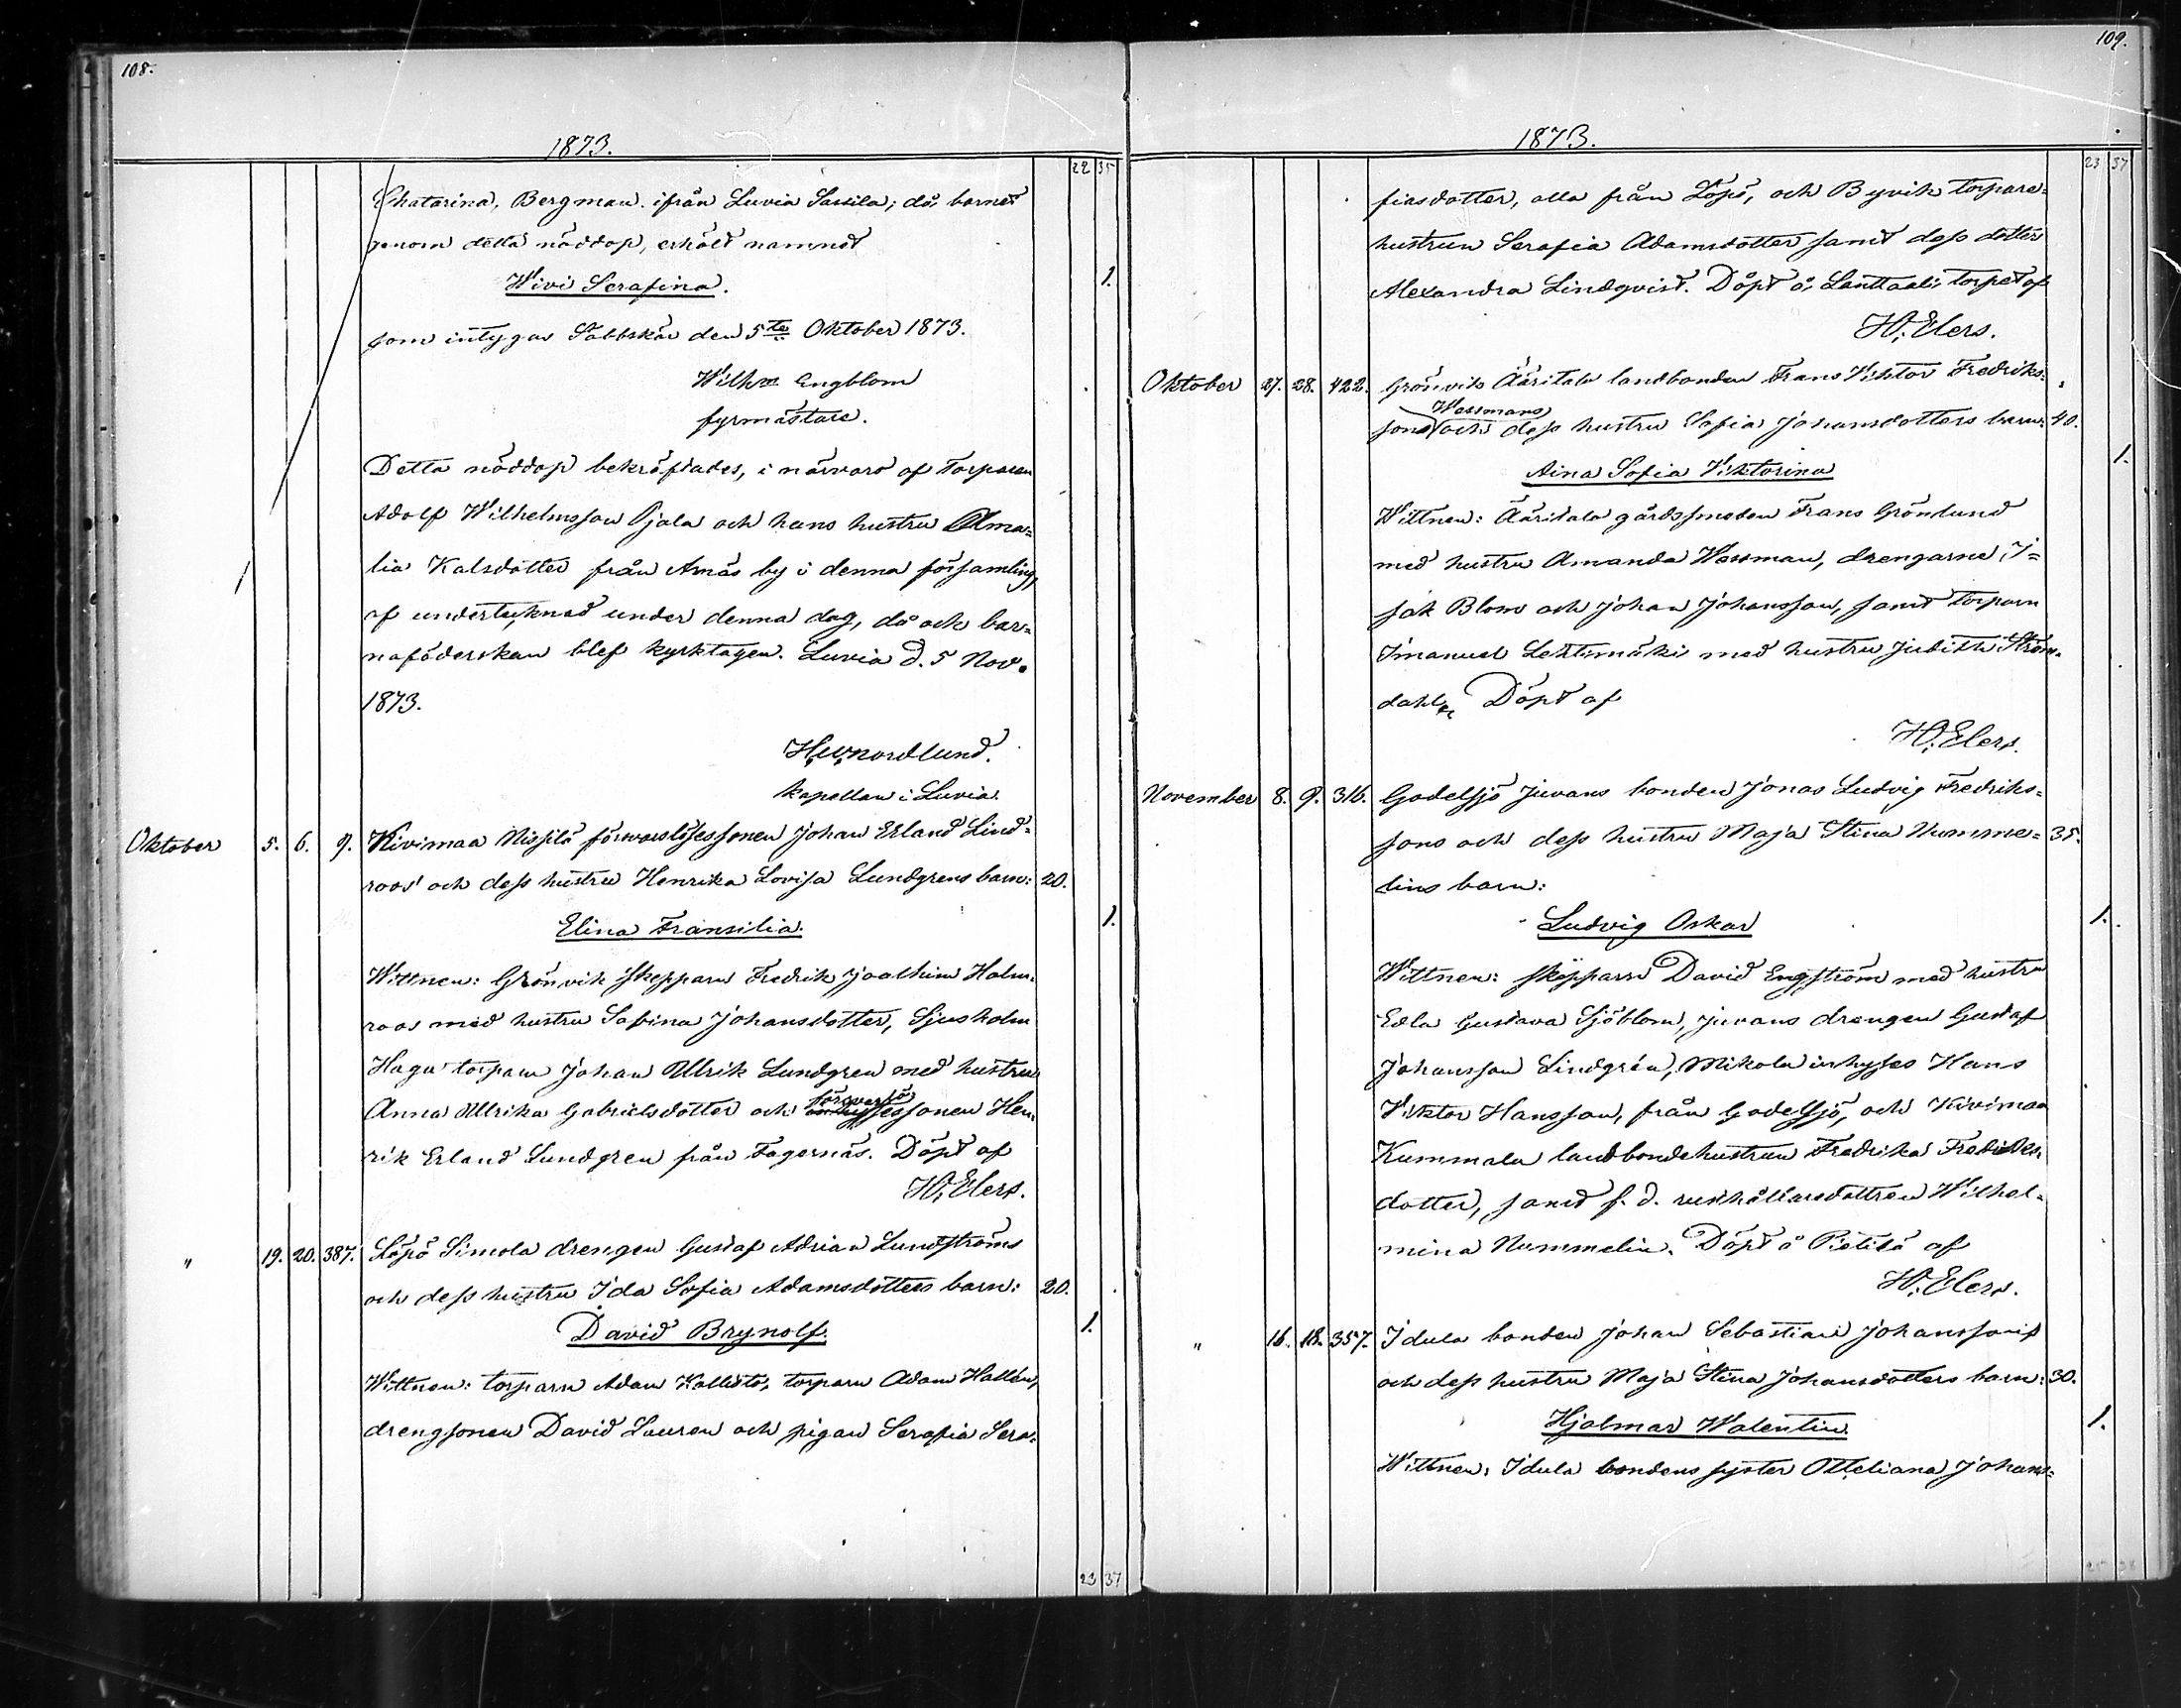 108.
1873.
22 35
Chatarina, Bergman ifrån Luvia Sassila; då barnet
genom detta nöddop, erhöll namnet
Wivi Serafina. 1.
som intygas Säbbskär den 5te Oktober 1873.
Wilhm Engblom
fyrmästare.
Detta nöddop bekräftades, i närvaro af Torparen
Adolf Wilhelmsson Ojala och hans hustru Ama=
lia Kalsdotter från Anäs by i denna församling,
af undertecknad under denna dag, då ock bar=
naföderskan blef kyrktagen. Luvia d. 5 Nov.
1873.
Nordlund.
kapellan i Luvia.
Oktober 5. 6. 9. Kivimaa Nissilä förswarslösessonen Johan Erland Lind=
roos' och dess hustru Henrika Lovisa Lundgrens barn: 20.
Elina Fransilia. 1.
Wittnen: Grönvik skepparn Fredrik Joachim Holm=
roos med hustru Sabina Johansdotter, Sjusholm
Haga torparn Johan Ulrik Lundgren med hustru
Anna Ulrika Gabrielsdotter och försvarslösessonen Hen=
rik Erland Lundgren från Fagernäs. Döpt af
H. Elers.
" 19. 20. 387. Löpö Simola drengen Gustaf Adrian Lundströms
och dess hustru Ida Sofia Adamsdotters barn: 20.
David Brynolf. 1.
Wittnen: torparn Adam Kallisto, torparn Adam Hallén,
drengsonen David Lauren och pigan Serafia Sera=
23 37
109.
1873.
23 37
fiasdotter, alla från Löpö, och Byvik torpare=
hustrun Serafia Adamsdotter samt dess dotter
Alexandra Lindqvist. Döpt å Lanttaali torpet af
H. Elers.
Oktober 27. 28. 422. Grönvik Ääritalo landbonden Frans Viktor Fredriks=
Wessmans
sons och dess hustru Sofia Johansdotters barn: 40.
Aina Sofia Viktorina 1.
Wittnen: Ääritalo gårdssmeden Frans Grönlund
med hustru Amanda Wessman, drengarne I=
sak Blom och Johan Johansson, samt torparn
Imanuel Lehtimäki med hustru Judith Ström=
dahl. Döpt af
H. Elers.
November 8. 9. 316. Godelsjö Juvans bonden Jonas Ludvig Fredriks=
sons och dess hustru Maja Stina Numme= 35.
lins barn:
Ludvig Oskar 1.
Wittnen: skepparn David Engström med hustru
Edla Gustava Sjöblom, Juvans drengen Gustaf
Johansson Lindgrén, Mikola inhyses Hans
Viktor Hansson, från Godelsjö, och Kivimaa
Kummala landbondehustrun Fredrika Fredriks=
dotter, samt f. d. rusthållaredottren Wilhel=
mina Nummelin. Döpt å Pietilä af
H. Elers.
" 16. 18. 357. Idula bonden Johan Sebastian Johanssons
och dess hustru Maja Stina Johansdotters barn: 30.
Hjalmar Walentin 1.
Wittnen: Idula bondens syster Otteliana Johans=